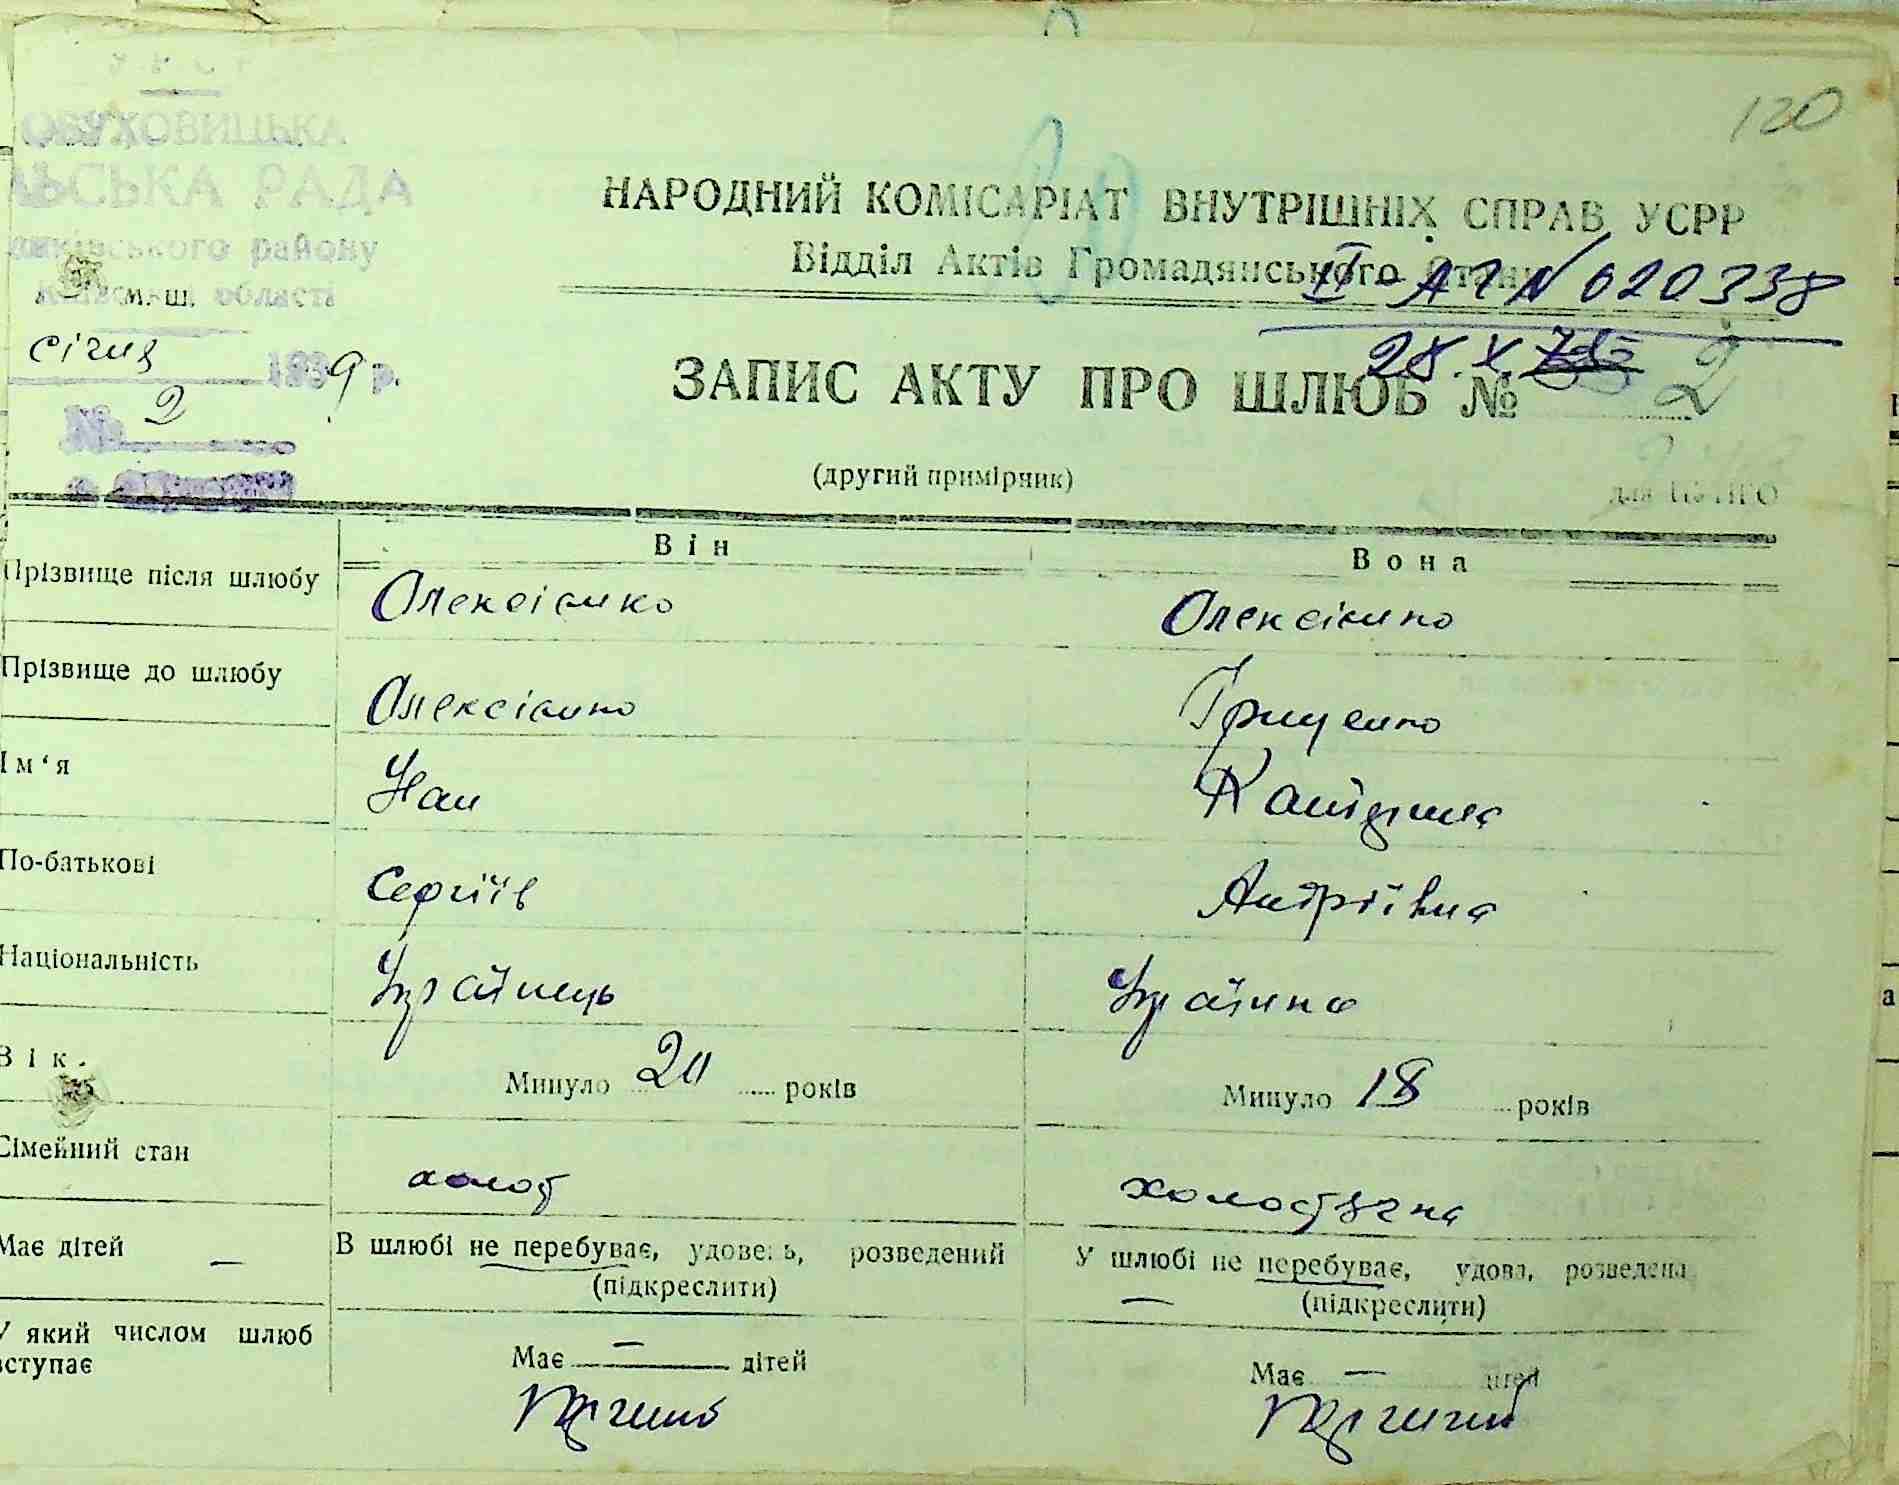 120
ОБУХОВИЦЬКА
ЛЬСЬКА РАДА
району
області
м. ш.
січня 1939 р.
№ 2
НАРОДНИЙ КОМІСАРІАТ ВНУТРІШНІХ СПРАВ УСРР
Відділ Актів Громадянського Стану
ІІ-АГ № 020338
28.X.
ЗАПИС АКТУ ПРО ШЛЮБ № 2
(другий примірник)
Він Вона
Прізвище після шлюбу Олексієнко Олексієнко
Прізвище до шлюбу Олексієнко Гриценко
Ім‘я Іван
По-батькові Сергіїв Андріївна
Національність Українець Українка
Вік. Минуло 20 років Минуло 18 років
Сімейний стан холост холостячна
Має дітей — В шлюбі не перебуває, удовець, розведений У шлюбі не перебуває, удова, розведена
(підкреслити) — (підкреслити)
У який числом шлюб
вступає
Має — дітей Має — дітей